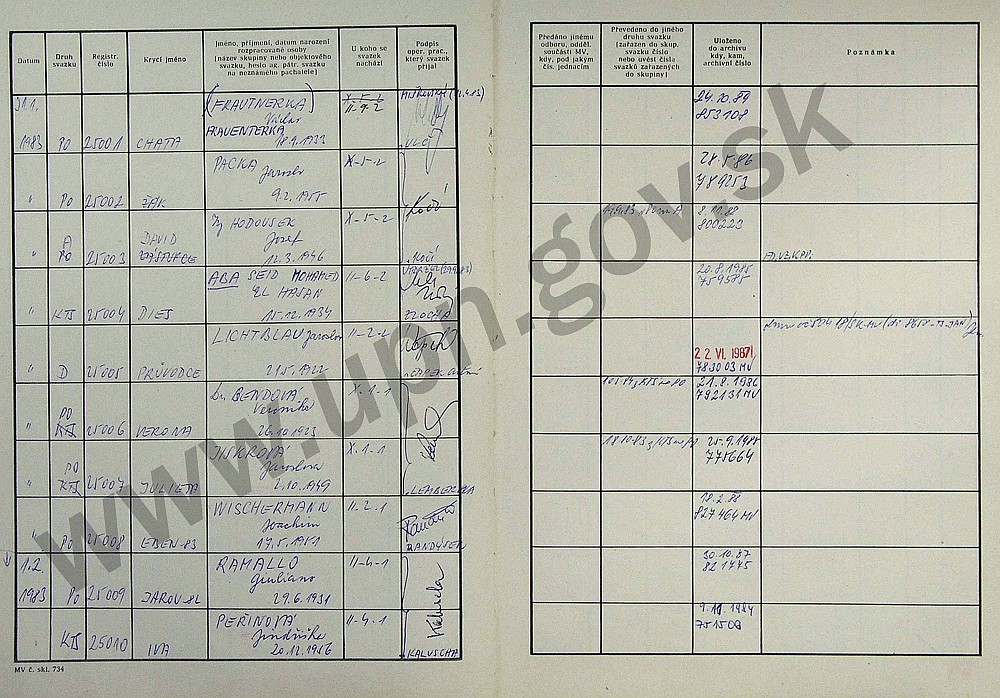 Datum
Druh
svazku
Registr.
číslo
Krycí jméno
Jméno, příjmení, datum narození
rozpracované osoby
(název skupiny nebo objektového
svazku, heslo ag. pátr. svazku
na neznámého pachatele)
U koho se
svazek
nachází
Podpis
oper. prac.,
který svazek
přijal
Předáno jinému
odboru, odděl.
součásti MV,
kdy, pod jakým
čís. jednacím
Převedeno do jiného
druhu svazku
(zařazen do skup.
svazku číslo
nebo uvést čísla
svazků zařazených
do skupiny)
Uloženo
do archivu
kdy, kam,
archivní číslo
Poznámka
31.1.
(FRAUTNERKA)
Václav
FRAUENTERKA
II-9-2
24.10.89
853108
1983 PO 25001 CHATA 18.9.1933
PACKA
Jaroslav
X-5-2
28.5.86
789253
" PO 25002 ŽÁK 9.2.1955
Ing HODOUSEK
Josef
X-5-2
8.11.88
800223
A DAVID
PO 25003 12.3.1946 KOČÍ
ABA SEID MOHAMED
EL HASAN
II-6-2
20.8.1985
759585
" KTS 25004 DIES 15.12.1934
LICHTBLAU Jaroslav
II-2-2
22. VI. 1987
783003 MV
" D 25005 PRŮVODCE 21.5.1922
Dr. BENDOVÁ
Veronika
X-1-1
21.8.1986
792131 MV
PO
" KTS 25006 VERONA 26.10.1923
JISKROVÁ
Jaroslava
X-1-1
25.9.1985
775664
PO
" KTS 25007 JULIETA 2.10.1949 LEMBERKA
WISCHERMANN
Joachim
II-2-1
18.2.88
827464 MV
" PO 25008 EBEN-83 19.5.1951
1.2. RAMALLO
Giuliano
II-4-1
30.10.87
821445
1983 PO 25009 JAROV-82 29.6.1931
PEŘINOVÁ
Jindřiška
II-4-1
KTS 25010 IVA 20.12.1956 KALUSCHA
MV č. skl. 734
www.upn.gov.sk